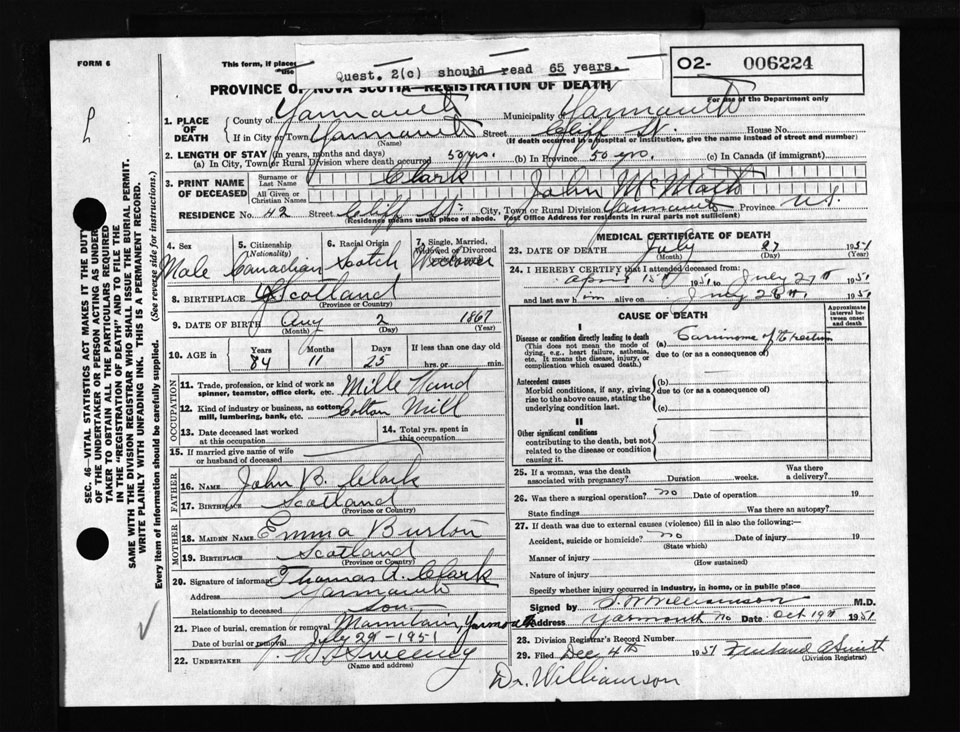 FORM 6
This form, if placed
use
Quest. 2(c) should read 65 years.
O2- 006224
PROVINCE OF NOVA SCOTIA—REGISTRATION OF DEATH
For use of the Department only
1. PLACE OF DEATH
County of Yarmouth Municipality of Yarmouth
If in City or Town Yarmouth Street Cliff St. House No.
(Name) (If death occurred in a hospital or institution, give the name instead of street and number)
2. LENGTH OF STAY (in years, months and days)
(a) In City, Town or Rural Division where death occurred 50 yrs. (b) in Province 50 yrs. (c) In Canada (if immigrant)
3. PRINT NAME OF DECEASED
Surname or Last Name Clark
All Given or Christian Names John McMath
RESIDENCE No. 42 Street Cliff St. City, Town or Rural Division Yarmouth Province N.S.
(Residence means usual place of abode. Post Office Address for residents in rural parts not sufficient)
4. Sex 5. Citizenship (Nationality) 6. Racial Origin 7. Single, Married, Widowed or Divorced
Male Canadian Scotch Widower
8. BIRTHPLACE Scotland
(Province or Country)
9. DATE OF BIRTH Aug 2 1867
(Month) (Day) (Year)
10. AGE in Years Months Days If less than one day old
84 11 25 hrs. or min.
OCCUPATION
11. Trade, profession, or kind of work as spinner, teamster, office clerk, etc. Mille Hand
12. Kind of industry or business, as cotton mill, lumbering, bank, etc. Cotton Mill
13. Date deceased last worked at this occupation 14. Total yrs. spent in this occupation
15. If married give name of wife or husband of deceased
FATHER
16. NAME John B. Clark
17. BIRTHPLACE Scotland
(Province or Country)
MOTHER
18. MAIDEN NAME Emma Burton
19. BIRTHPLACE Scotland
(Province or Country)
20. Signature of informant Thomas A. Clark
Address Yarmouth
Relationship to deceased son.
21. Place of burial, cremation or removal Mountain, Yarmouth
Date of burial or removal July 29 - 1951
22. UNDERTAKER Sweeney
(Name and address)
MEDICAL CERTIFICATE OF DEATH
23. DATE OF DEATH July 27 1951
(Month) (Day) (Year)
24. I HEREBY CERTIFY that I attended deceased from
April 15th 1951 to July 27th 1951
and last saw him alive on July 26th 1951
CAUSE OF DEATH
Approximate interval between onset and death
I
Disease or condition directly leading to death (a) Carcinoma of rectum
(This does not mean the mode of dying, e.g., heart failure, asthenia, etc. It means the disease, injury, or complication which caused death.)
due to (or as a consequence of)
Antecedent causes (b)
Morbid conditions, if any, giving rise to the above cause, stating the underlying condition last.
due to (or as a consequence of)
(c)
II
Other significant conditions
contributing to the death, but not related to the disease or condition causing it.
25. If a woman, was the death associated with pregnancy? Duration weeks. Was there a delivery?
26. Was there a surgical operation? no Date of operation 19
State findings Was there an autopsy?
27. If death was due to external causes (violence) fill in also the following:—
Accident, suicide or homicide? no Date of injury 19
(State which)
Manner of injury
(How sustained)
Nature of injury
Specify whether injury occurred in industry, in home, or in public place
Signed by S. W. Williamson M.D.
Address Yarmouth NS Date Oct 19th 1951
28. Division Registrar's Record Number
29. Filed Dec 4th 1951
(Division Registrar)
Dr. Williamson
SEC. 46—VITAL STATISTICS ACT MAKES IT THE DUTY
OF THE UNDERTAKER OR PERSON ACTING AS UNDERTAKER TO OBTAIN ALL THE PARTICULARS REQUIRED
IN THE "REGISTRATION OF DEATH" AND TO FILE THE
SAME WITH THE DIVISION REGISTRAR WHO SHALL ISSUE THE BURIAL PERMIT.
WRITE PLAINLY WITH UNFADING INK. THIS IS A PERMANENT RECORD.
Every item of information should be carefully supplied. (See reverse side for instructions.)